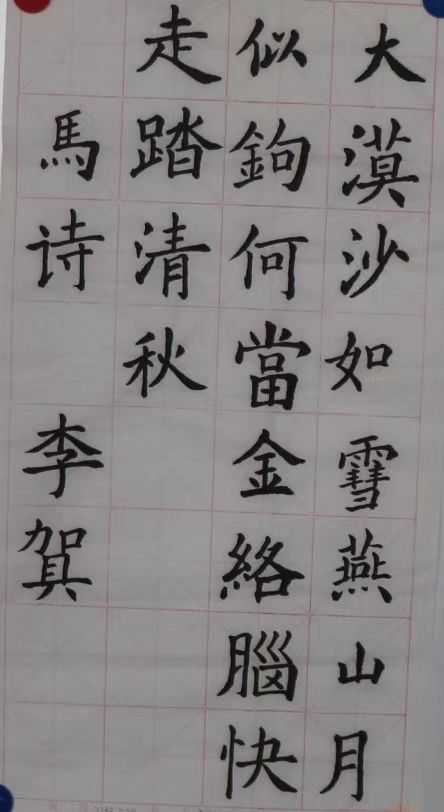 大漠沙如雪燕山月
似鉤何當金絡腦快
走踏清秋
馬诗 李賀